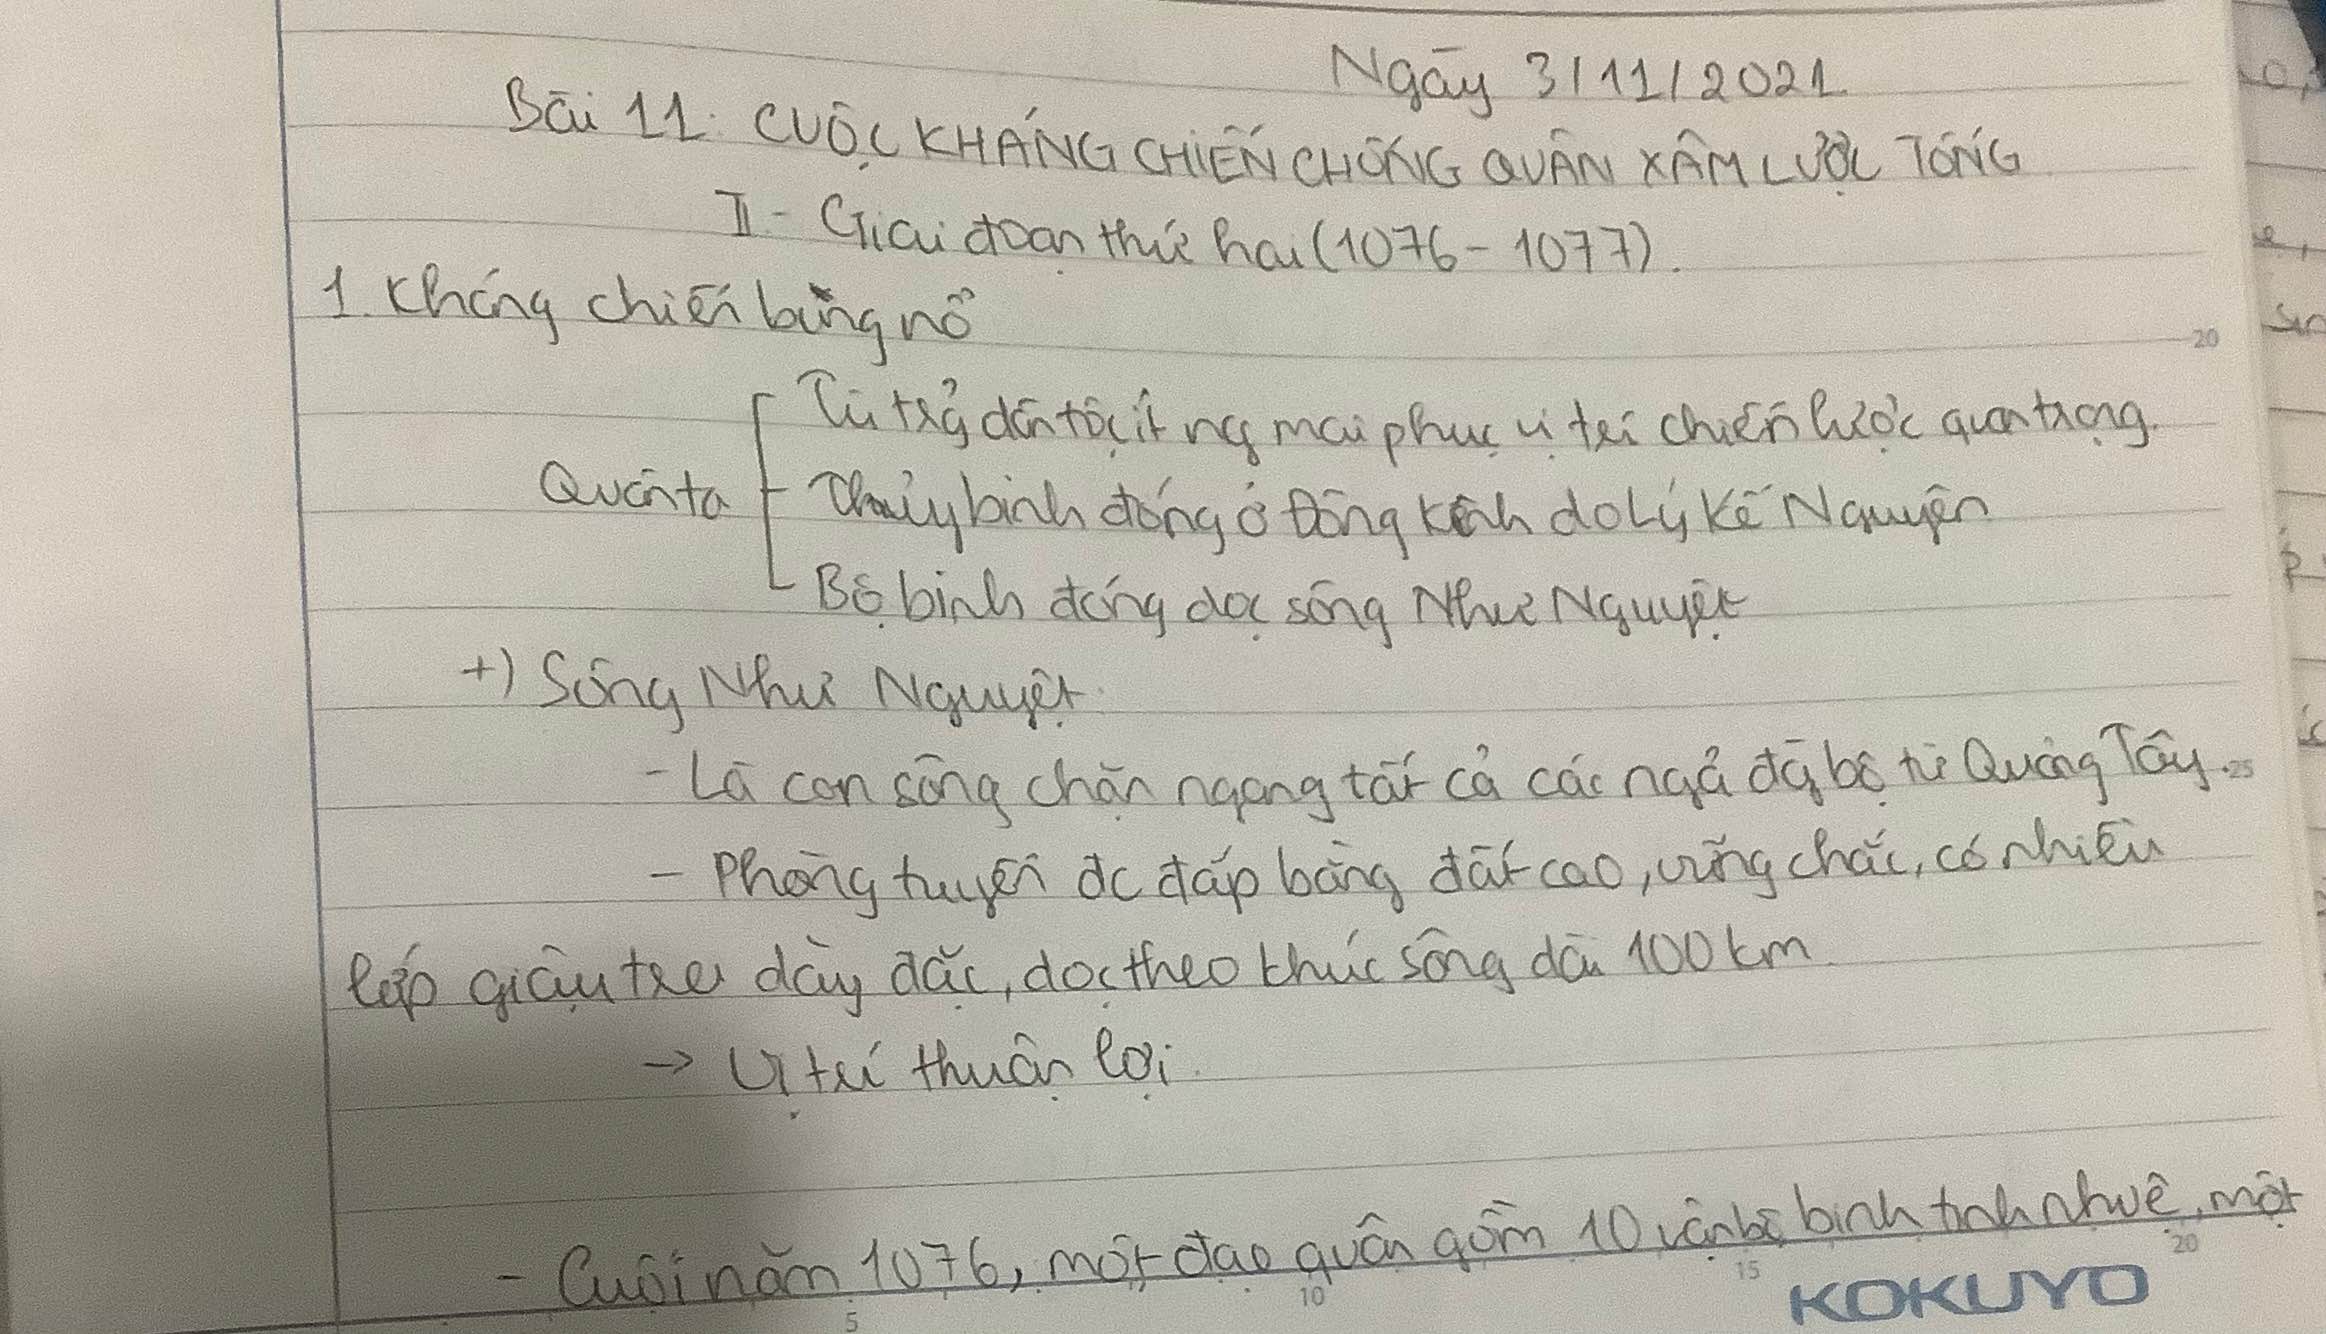 Ngày 3/11/2021
Bài 11: CUỘC KHÁNG CHIẾN CHỐNG QUÂN XÂM LƯỢC TỐNG
II - Giai đoạn thứ hai (1076 - 1077).
1. Kháng chiến bùng nổ
Tù trg dân tộc ít ng mai phục vị trí chiến lược quan trọng.
Quân ta
Thủy binh đóng ở Đông Kênh do Lý Kế Nguyên
Bộ binh đóng dọc sông Như Nguyệt
+) Sông Như Nguyệt
- Là con sông chặn ngang tất cả các ngả đg bộ từ Quảng Tây.
- Phòng tuyến đc đắp bằng đất cao, vững chắc, có nhiều
lớp giậu tre dày đặc, dọc theo khúc sông dài 100 km.
→ Vị trí thuận lợi.
- Cuối năm 1076, một đạo quân gồm 10 vạn bộ binh tinh nhuệ, một
KOKUYO
20
25
5
10
15
20